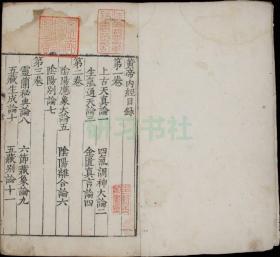 黃帝內經目錄
第一卷
上古天真論一
四氣調神大論二
生氣通天論三
金匱真言論四
第二卷
陰陽應象大論五
陰陽離合論六
陰陽別論七
第三卷
靈蘭秘典論八
六節藏象論九
五藏生成論十
五藏別論十一